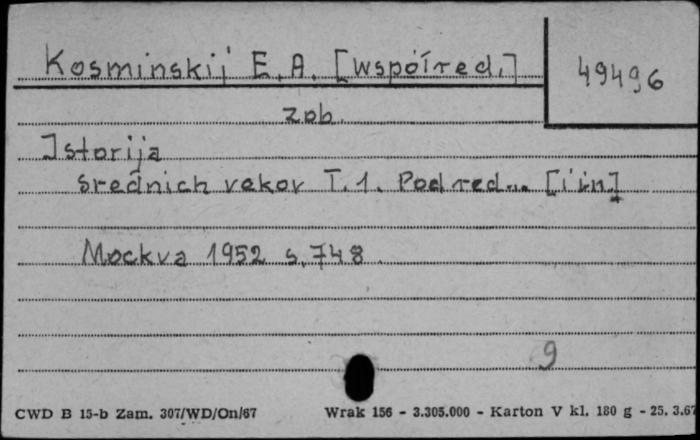 Kosminskij E.A. [współred.]
49496
zob.
Istorija
srednich vekov T.1. Pod red... [i in.]
Mockva 1952 s. 748.
9
CWD B 15-b Zam. 307/WD/On/67 Wrak 156 - 3.305.000 - Karton V kl. 180 g - 25. 3.67